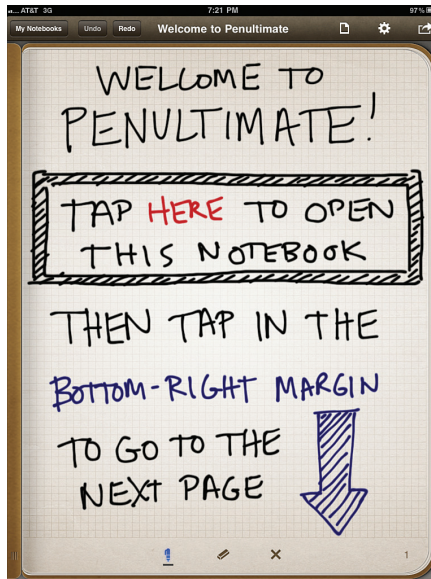 AT&T 3G 7:21 PM 97%
My Notebooks Undo Redo Welcome to Penultimate
WELCOME TO
PENULTIMATE!
TAP HERE TO OPEN
THIS NOTEBOOK
THEN TAP IN THE
BOTTOM-RIGHT MARGIN
TO GO TO THE
NEXT PAGE
1